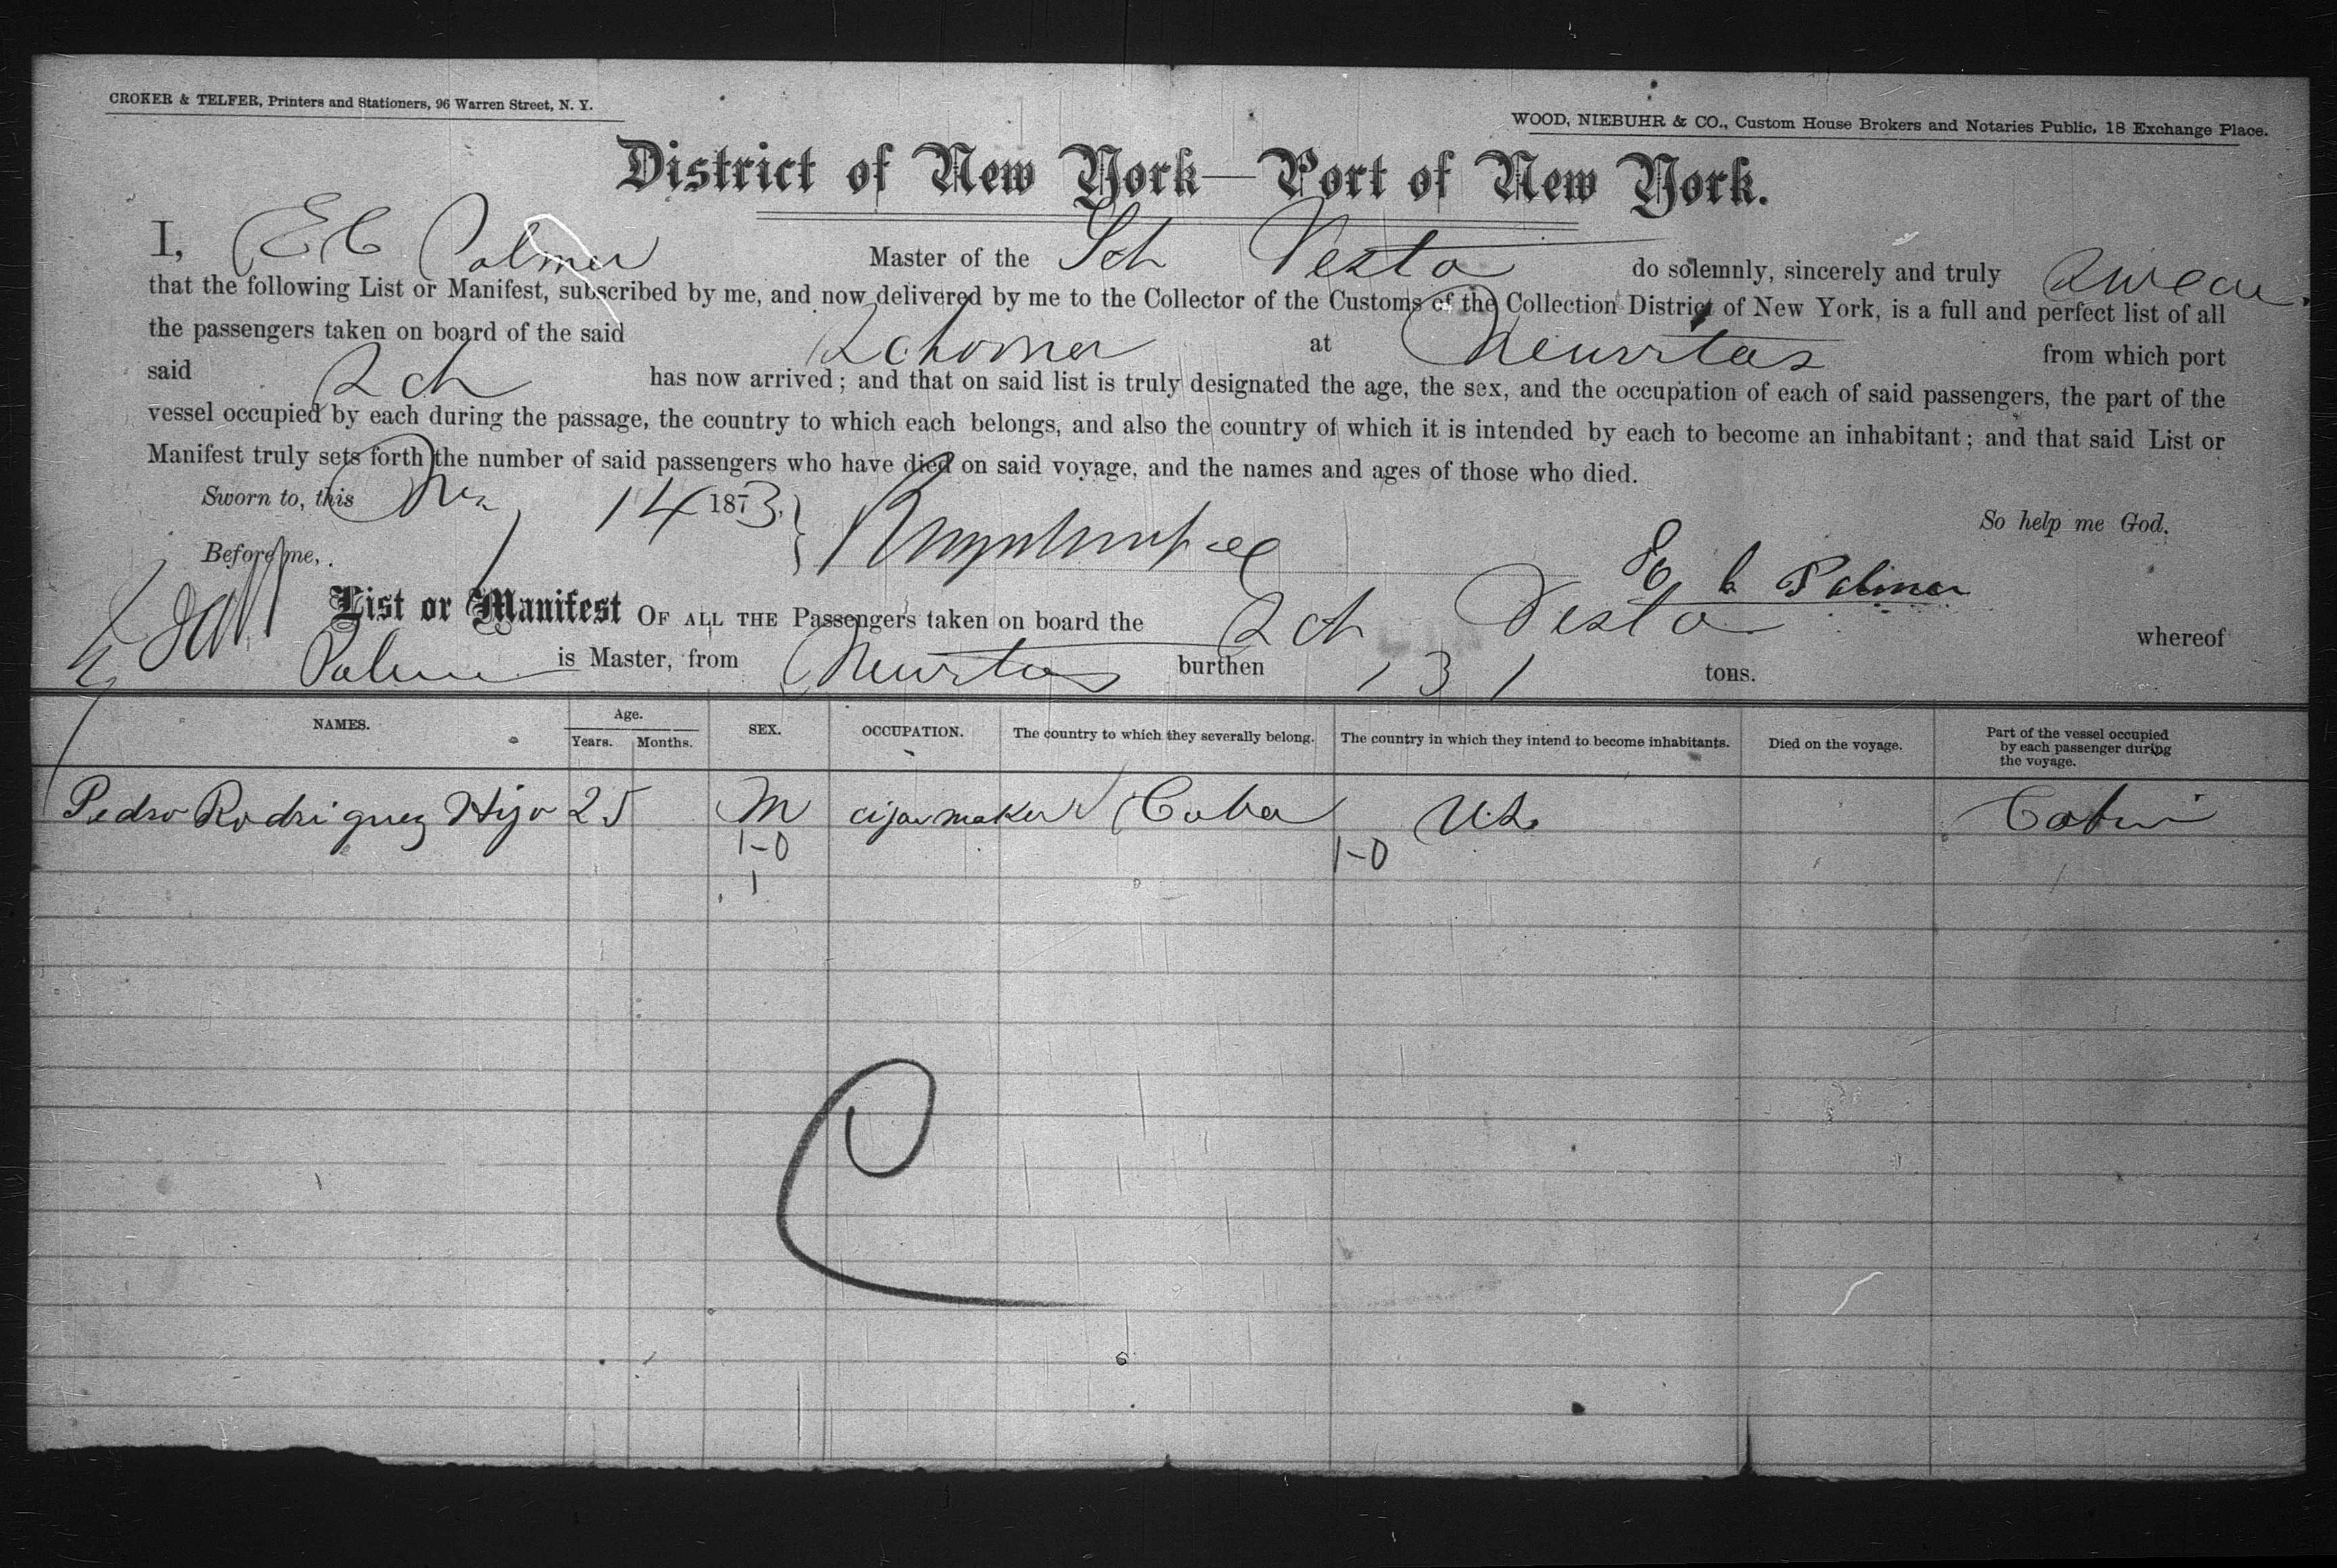 CROKER & TELFER, Printers and Stationers, 96 Warren Street, N. Y.
WOOD, NIEBUHR & CO., Custom House Brokers and Notaries Public, 18 Exchange Place.
District of New York—Port of New York.
I, E C Palmer Master of the Sch Vesta do solemnly, sincerely and truly swear
that the following List or Manifest, subscribed by me, and now delivered by me to the Collector of the Customs of the Collection District of New York, is a full and perfect list of all
the passengers taken on board of the said Schooner at Neuvitas from which port
said Sch has now arrived; and that on said list is truly designated the age, the sex, and the occupation of each of said passengers, the part of the
vessel occupied by each during the passage, the country to which each belongs, and also the country of which it is intended by each to become an inhabitant; and that said List or
Manifest truly sets forth the number of said passengers who have died on said voyage, and the names and ages of those who died.
Sworn to, this 14 1873. So help me God.
Before me, E C Palmer
List or Manifest OF ALL THE Passengers taken on board the Sch Vesta whereof
Palmer is Master, from Neuvitas burthen 131 tons.
NAMES. Age. Years. Months. SEX. OCCUPATION. The country to which they severally belong. The country in which they intend to become inhabitants. Died on the voyage. Part of the vessel occupied by each passenger during the voyage.
Pedro Rodriguez Hijo 25 M cijar maker Cuba U.S. Cabin
1-0 1-0
1
C